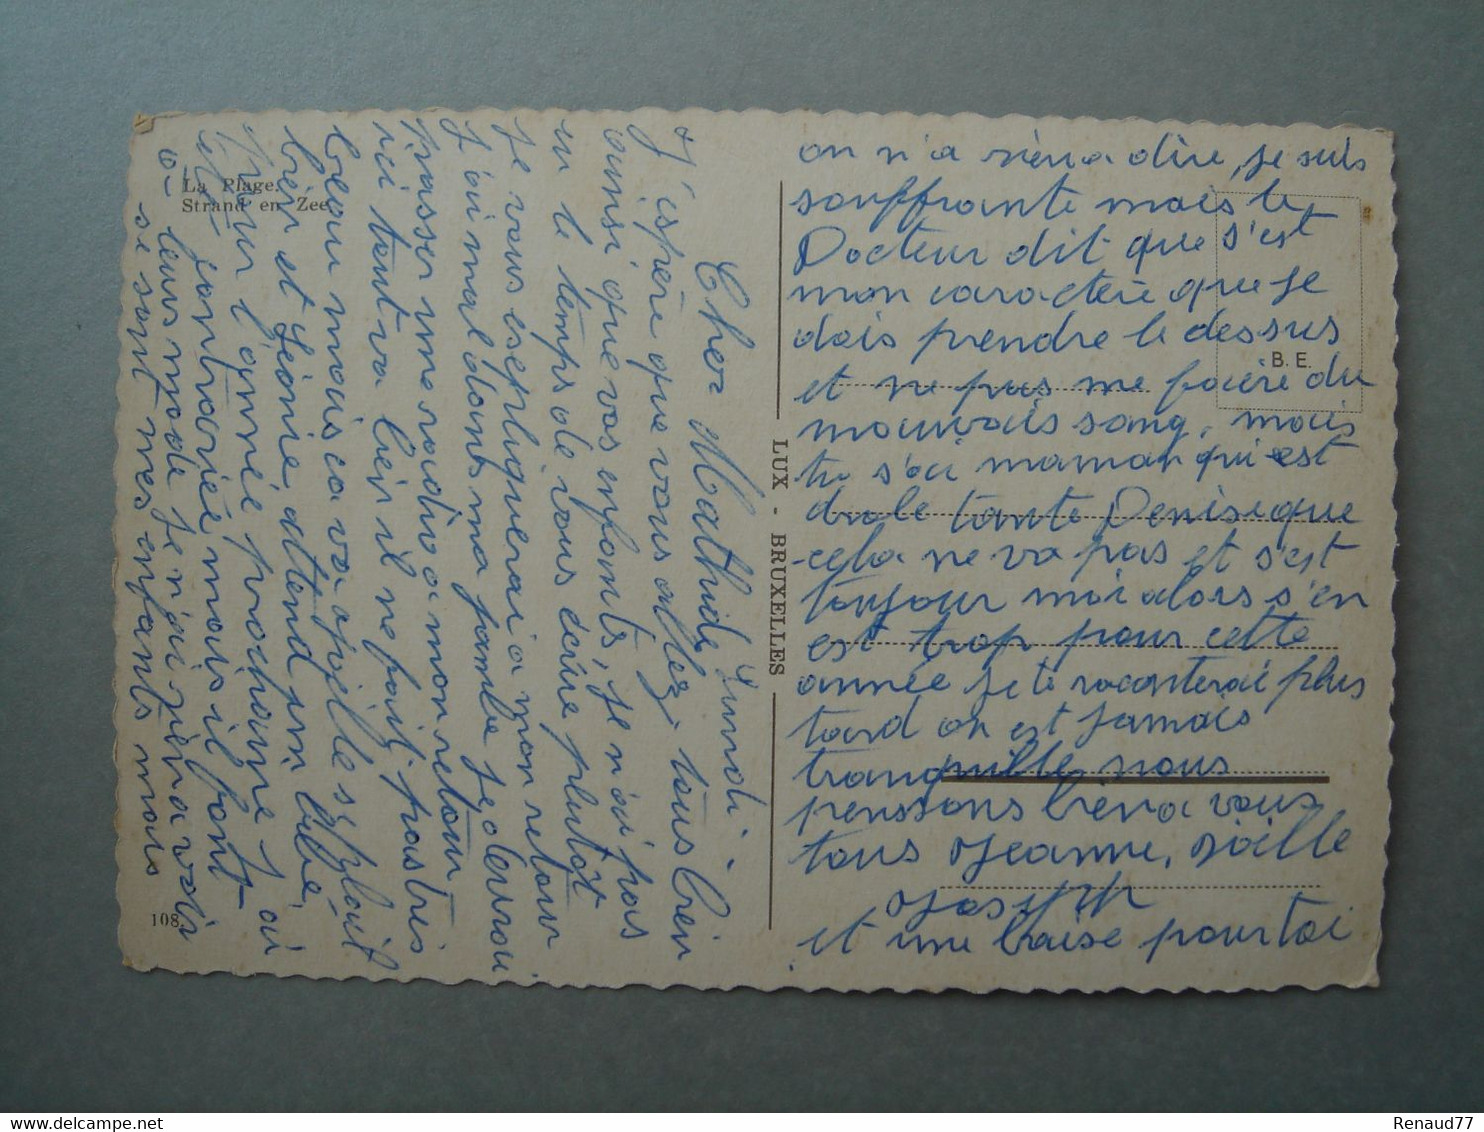 La Plage.
Strand en Zee.
108.
LUX - BRUXELLES
B. E.
Lundi.
Cher Mathilde
J'espère que vous allez tous bien
ainsi que vos enfants, je n'ai pas
eu le temps de vous écrire plutôt
je vous expliquerai a mon retour
j'ai mal dans ma jambe je devrai
passer une radio a mon retour
ici tout va bien il ne fait pas très
beau mais ca va Joëlle s'plait
bien et Léonie attend un bébé
pour l'année prochaine j'ai
été contrariée mais il font
a leurs mode je n'ai rien a voir
se sont mes enfants mais
on n'a rien a dire, je suis
souffrante mais le
Docteur dit que s'est
mon caractère que je
dois prendre le dessus
et ne pas me faire du
mauvais sang, mais
tu s'ai maman qui est
drole tante Denise que
cela ne va pas et s'est
toujour moi alors s'en
est trop pour cette
année je te raconterai plus
tard on est jamais
tranquille, nous
penssons bien a vous
tous Jeanne, Joëlle
Joseph
et une baise pour toi
Renaud77